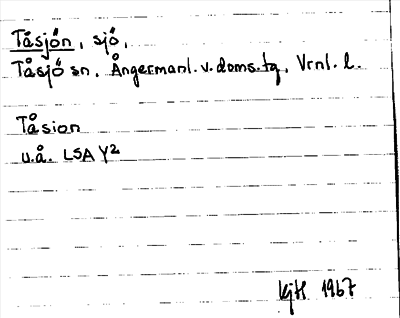 Tåsjön, sjö,
Tåsjö sn, Ångermanl. v. doms.tg, Vrnl. l.
Tåsion
u.å. LSA Y2
1967